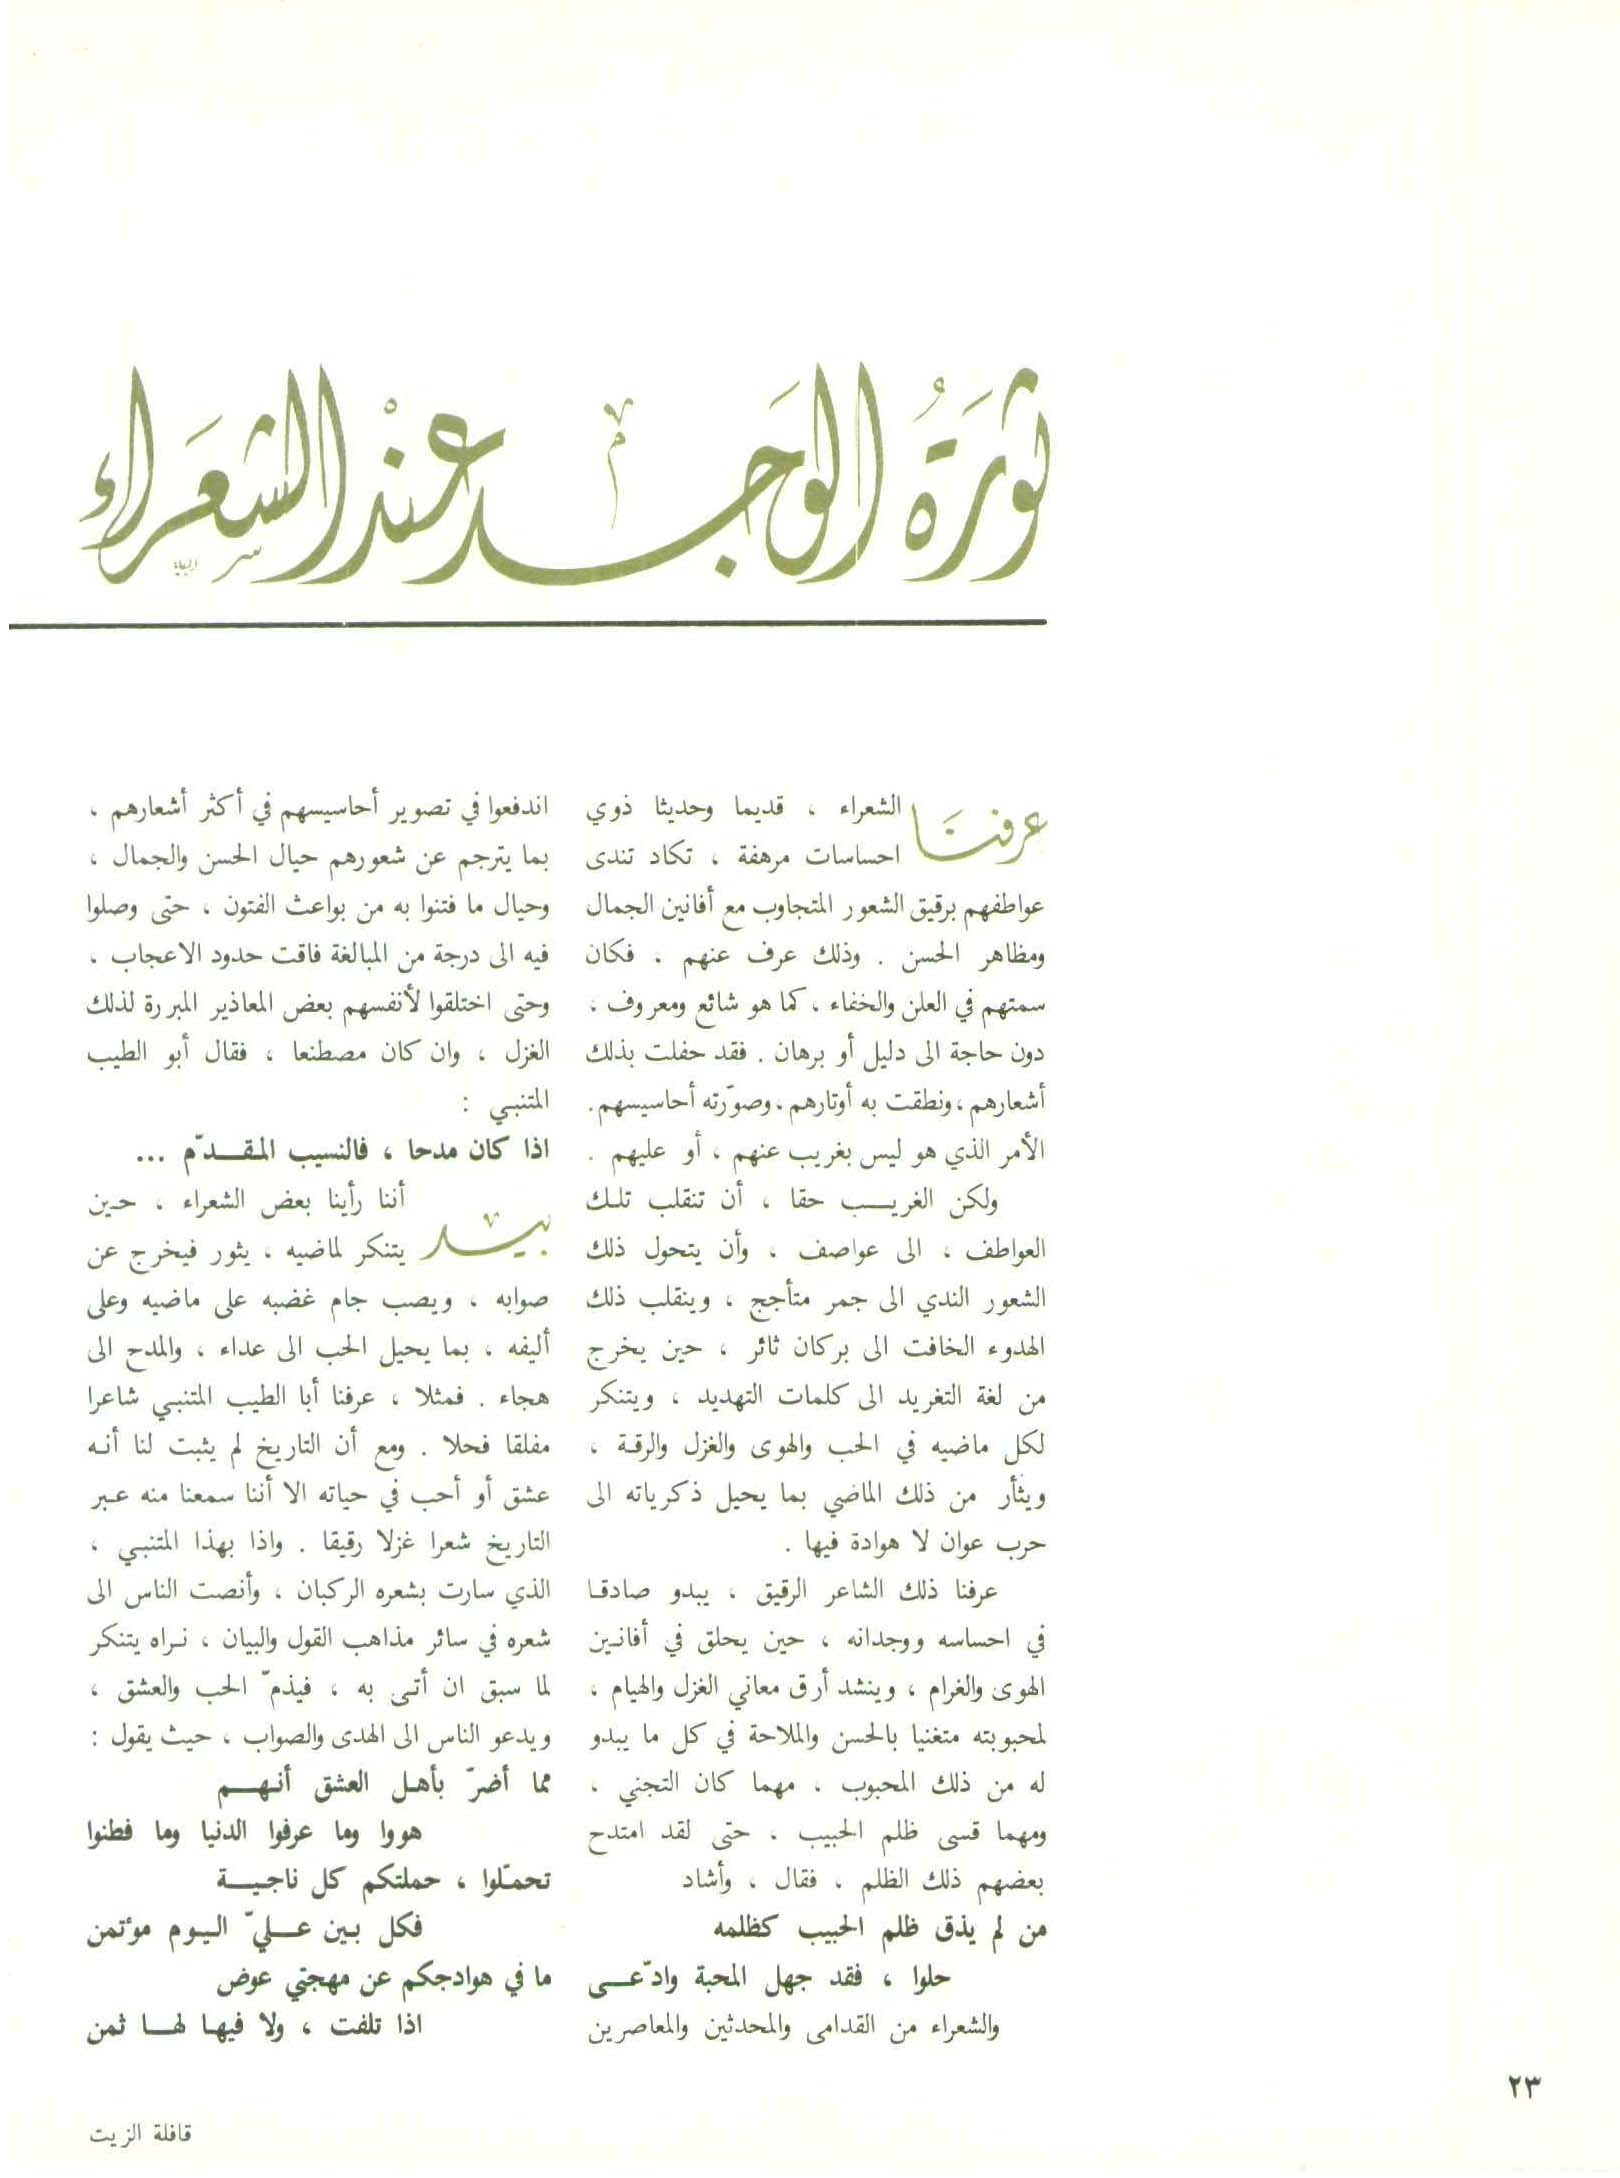 ثورَةُ الوَجد عنْد الشعَراء
عرفنَا الشعراء ، قديما وحديثا ذوي
احساسات مرهفة ، تكاد تندى
عواطفهم برقيق الشعور المتجاوب مع أفانين الجمال
ومظاهر الحسن . وذلك عرف عنهم ، فكان
سمتهم في العلن والخفاء ، كما هو شائع ومعروف ،
دون حاجة الى دليل أو برهان . فقد حفلت بذلك
أشعارهم ، ونطقت به أوتارهم ، وصوّرته أحاسيسهم .
الأمر الذي هو ليس بغريب عنهم ، أو عليهم .
ولكن الغريب حقا ، أن تنقلب تلك
العواطف ، الى عواصف ، وأن يتحول ذلك
الشعور الندي الى جمر متأجج ، وينقلب ذلك
الهدوء الخافت الى بركان ثائر ، حين يخرج
من لغة التغريد الى كلمات التهديد ، ويتنكر
لكل ماضيه في الحب والهوى والغزل والرقة ،
ويثأر من ذلك الماضي بما يحيل ذكرياته الى
حرب عوان لا هوادة فيها .
عرفنا ذلك الشاعر الرقيق ، يبدو صادقا
في احساسه ووجدانه ، حين يحلق في أفانين
الهوى والغرام ، وينشد أرق معاني الغزل والهيام ،
لمحبوبته متغنيا بالحسن والملاحة في كل ما يبدو
له من ذلك المحبوب ، مهما كان التجني ،
ومهما قسى ظلم الحبيب ، حتى لقد امتدح
بعضهم ذلك الظلم ، فقال ، وأشاد
من لم يذق ظلم الحبيب كظلمه
حلوا ، فقد جهل المحبة وادّعى
والشعراء من القدامى والمحدثين والمعاصرين
اندفعوا في تصوير أحاسيسهم في أكثر أشعارهم ،
بما يترجم عن شعورهم حيال الحسن والجمال ،
وحيال ما فتنوا به من بواعث الفتون ، حتى وصلوا
فيه الى درجة من المبالغة فاقت حدود الاعجاب ،
وحتى اختلقوا لأنفسهم بعض المعاذير المبررة لذلك
الغزل ، وان كان مصطنعا ، فقال أبو الطيب
المتنبي :
اذا كان مدحا ، فالنسيب المقدّم ...
بيد أننا رأينا بعض الشعراء ، حين
يتنكر لماضيه ، يثور فيخرج عن
صوابه ، ويصب جام غضبه على ماضيه وعلى
أليفه ، بما يحيل الحب الى عداء ، والمدح الى
هجاء . فمثلا ، عرفنا أبا الطيب المتنبي شاعرا
مفلقا فحلا . ومع أن التاريخ لم يثبت لنا أنه
عشق أو أحب في حياته الا أننا سمعنا منه عبر
التاريخ شعرا غزلا رقيقا . واذا بهذا المتنبي ،
الذي سارت بشعره الركبان ، وأنصت الناس الى
شعره في سائر مذاهب القول والبيان ، نراه يتنكر
لما سبق ان أتى به ، فيذمّ الحب والعشق ،
ويدعو الناس الى الهدى والصواب ، حيث يقول :
مما أضرّ بأهل العشق أنهم
هووا وما عرفوا الدنيا وما فطنوا
تحمّلوا ، حملتكم كل ناجية
فكل بين عليّ اليوم مؤتمن
ما في هوادجكم عن مهجتي عوض
اذا تلفت ، ولا فيها لها ثمن
٢٣
قافلة الزيت